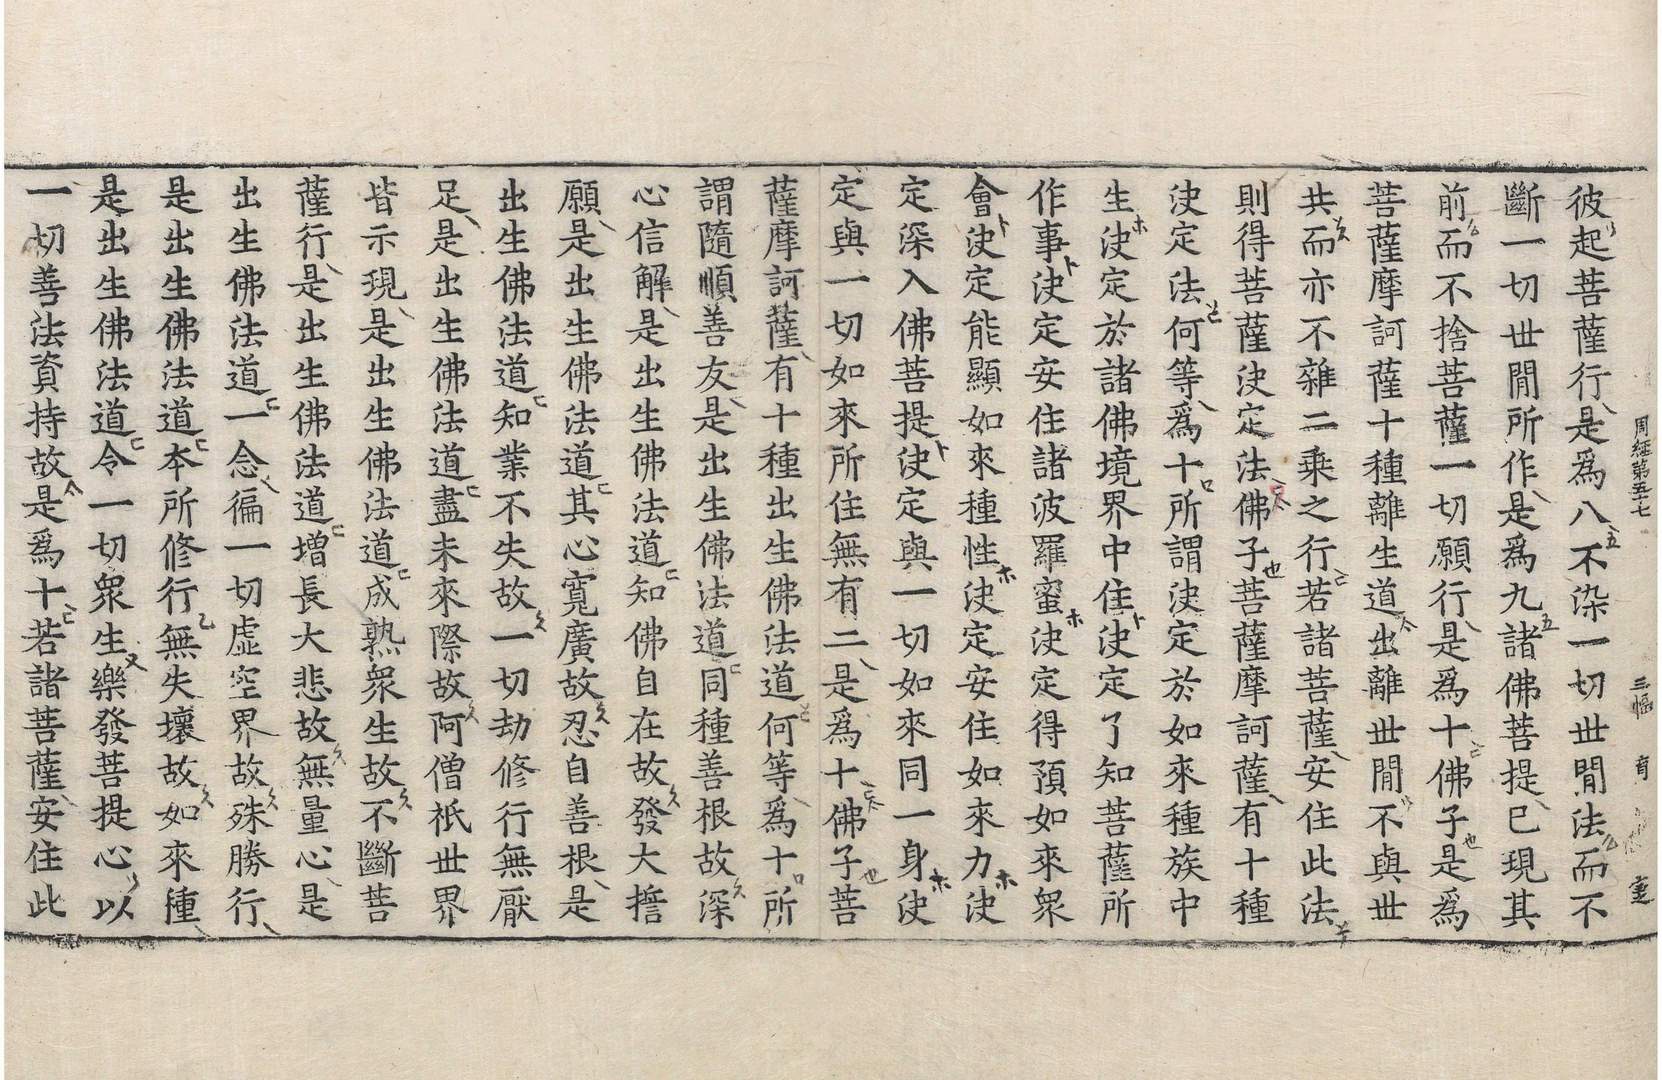 周經第五十七 三幅 育 𡩋
彼起菩薩行是爲八不染一切世間法而不
斷一切世間所作是爲九諸佛菩提已現其
前而不捨菩薩一切願行是爲十佛子是爲
菩薩摩訶薩十種離生道出離世間不與世
共而亦不雜二乘之行若諸菩薩安住此法
則得菩薩決定法佛子菩薩摩訶薩有十種
決定法何等爲十所謂決定於如來種族中
生決定於諸佛境界中住決定了知菩薩所
作事決定安住諸波羅蜜決定得預如來衆
會決定能顯如來種性決定安住如來力決
定深入佛菩提決定與一切如來同一身決
定與一切如來所住無有二是爲十佛子菩
薩摩訶薩有十種出生佛法道何等爲十所
謂隨順善友是出生佛法道同種善根故深
心信解是出生佛法道知佛自在故發大誓
願是出生佛法道其心寬廣故忍自善根是
出生佛法道知業不失故一切劫修行無厭
足是出生佛法道盡未來際故阿僧祇世界
皆示現是出生佛法道成熟衆生故不斷菩
薩行是出生佛法道增長大悲故無量心是
出生佛法道一念徧一切虛空界故殊勝行
是出生佛法道本所修行無失壞故如來種
是出生佛法道令一切衆生樂發菩提心以
一切善法資持故是爲十若諸菩薩安住此